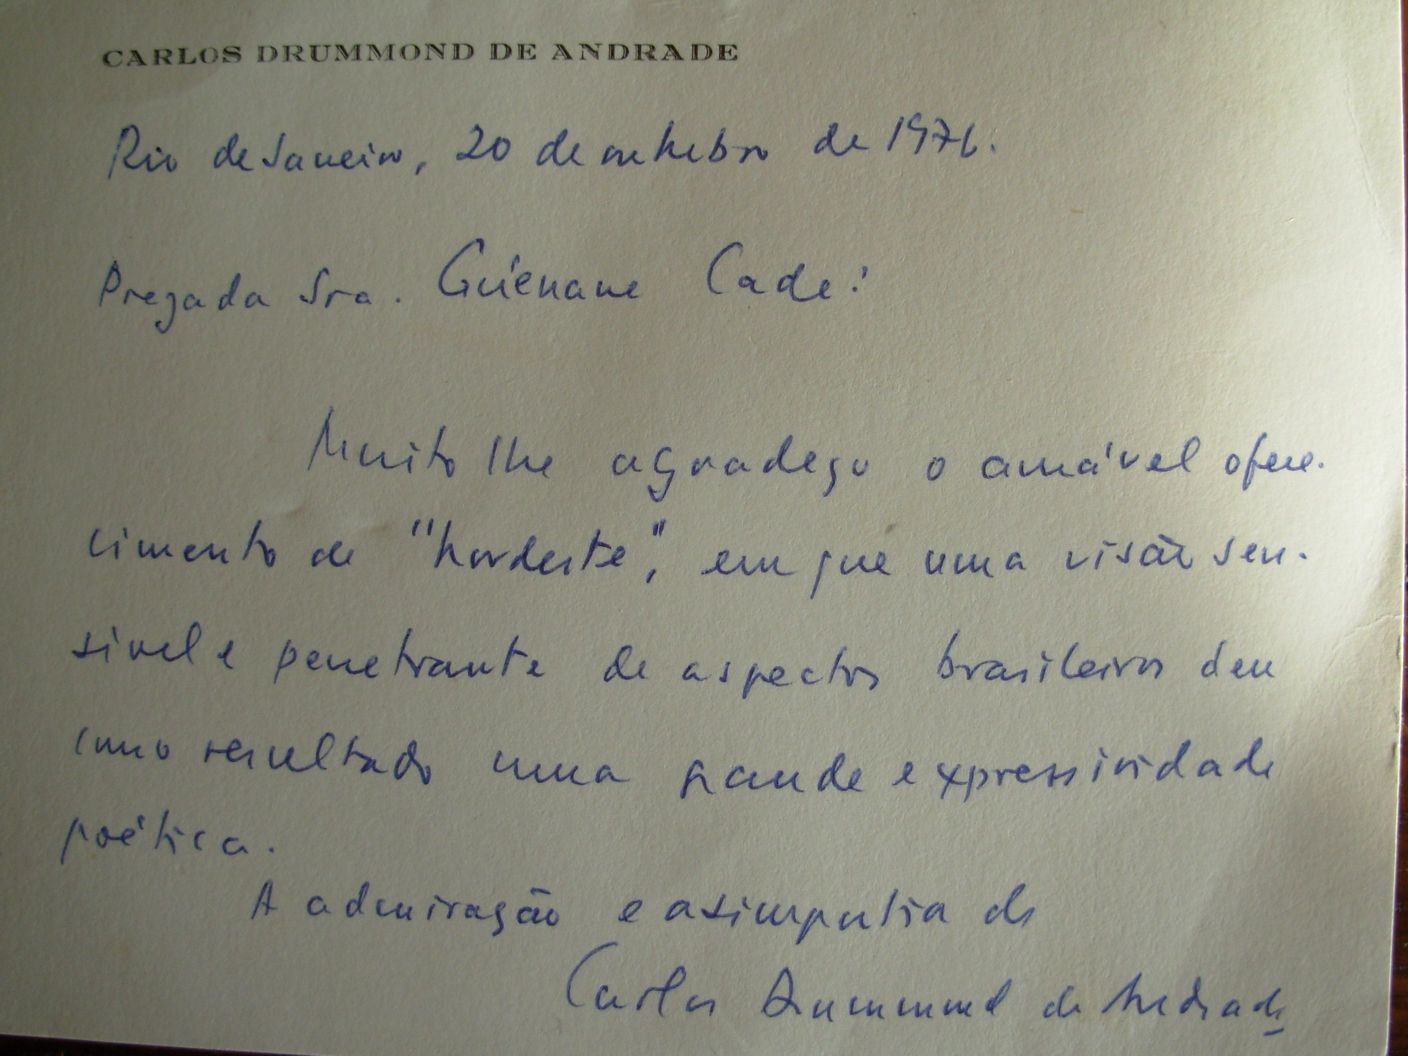 CARLOS DRUMMOND DE ANDRADE
Rio de Janeiro, 20 de outubro de 1976.
Prezada Sra. Guénane Cade:
Muito lhe agradeço o amável ofere-
cimento de "Nordeste", em que uma visão sen-
sivel e penetrante de aspectos brasileiros deu
como resultado uma grande expressividade
poética.
A admiração e a simpatia de
Carlos Drummond de Andrade